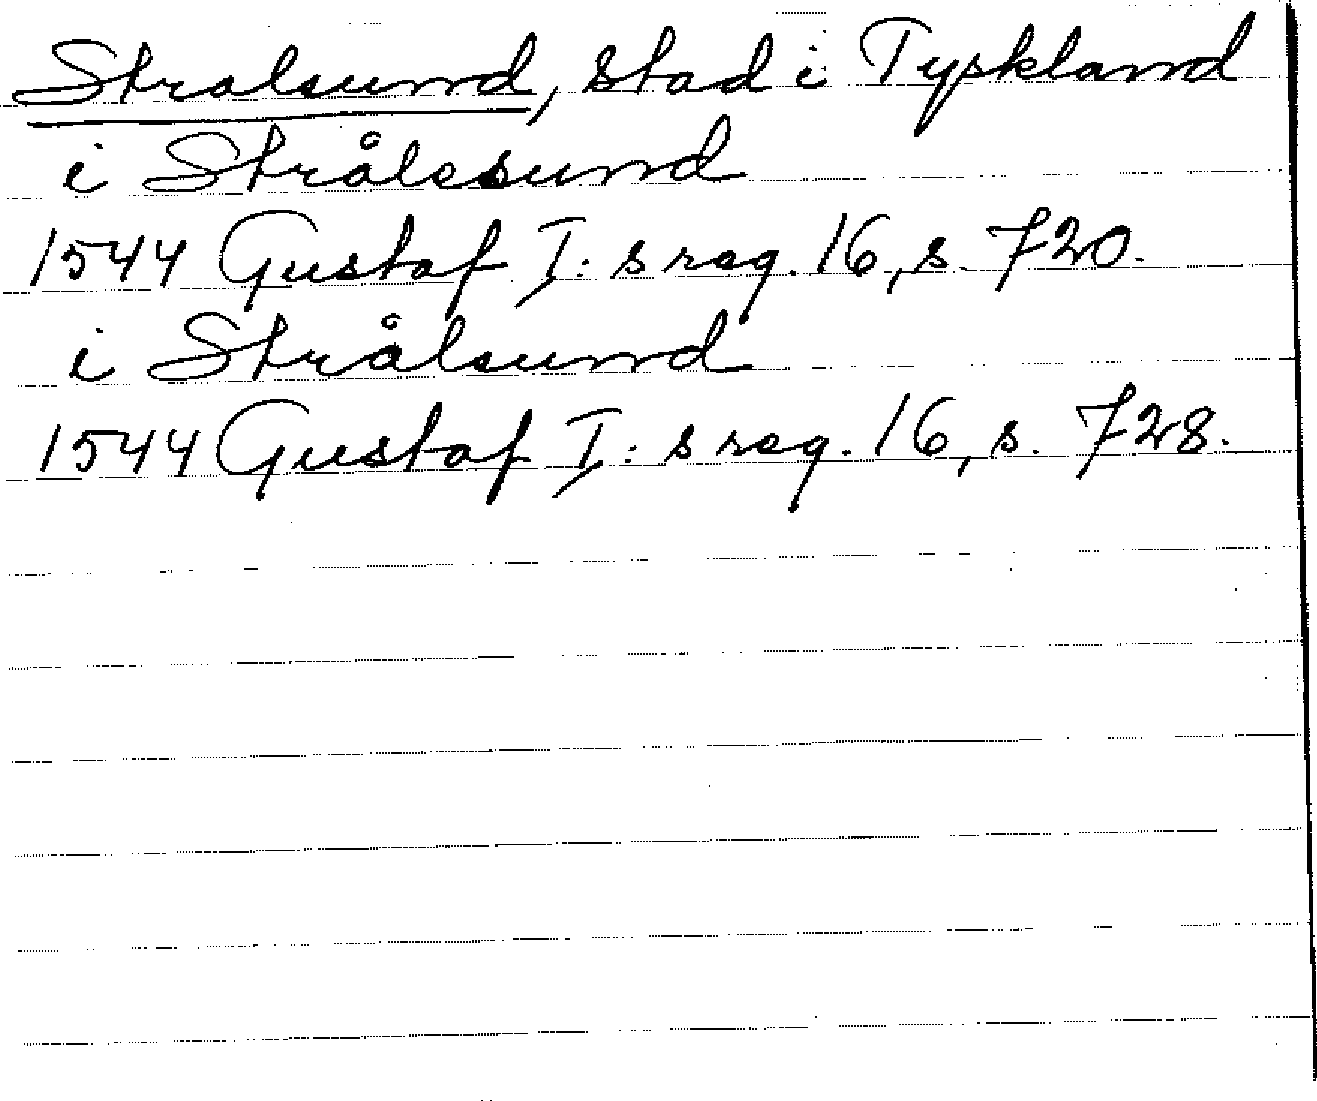 Stralsund, stad i Tyskland
i Strålesund
1544 Gustaf I:s reg. 16, s. 720.
i Strålsund
1544 Gustaf I:s reg. 16, s. 728.